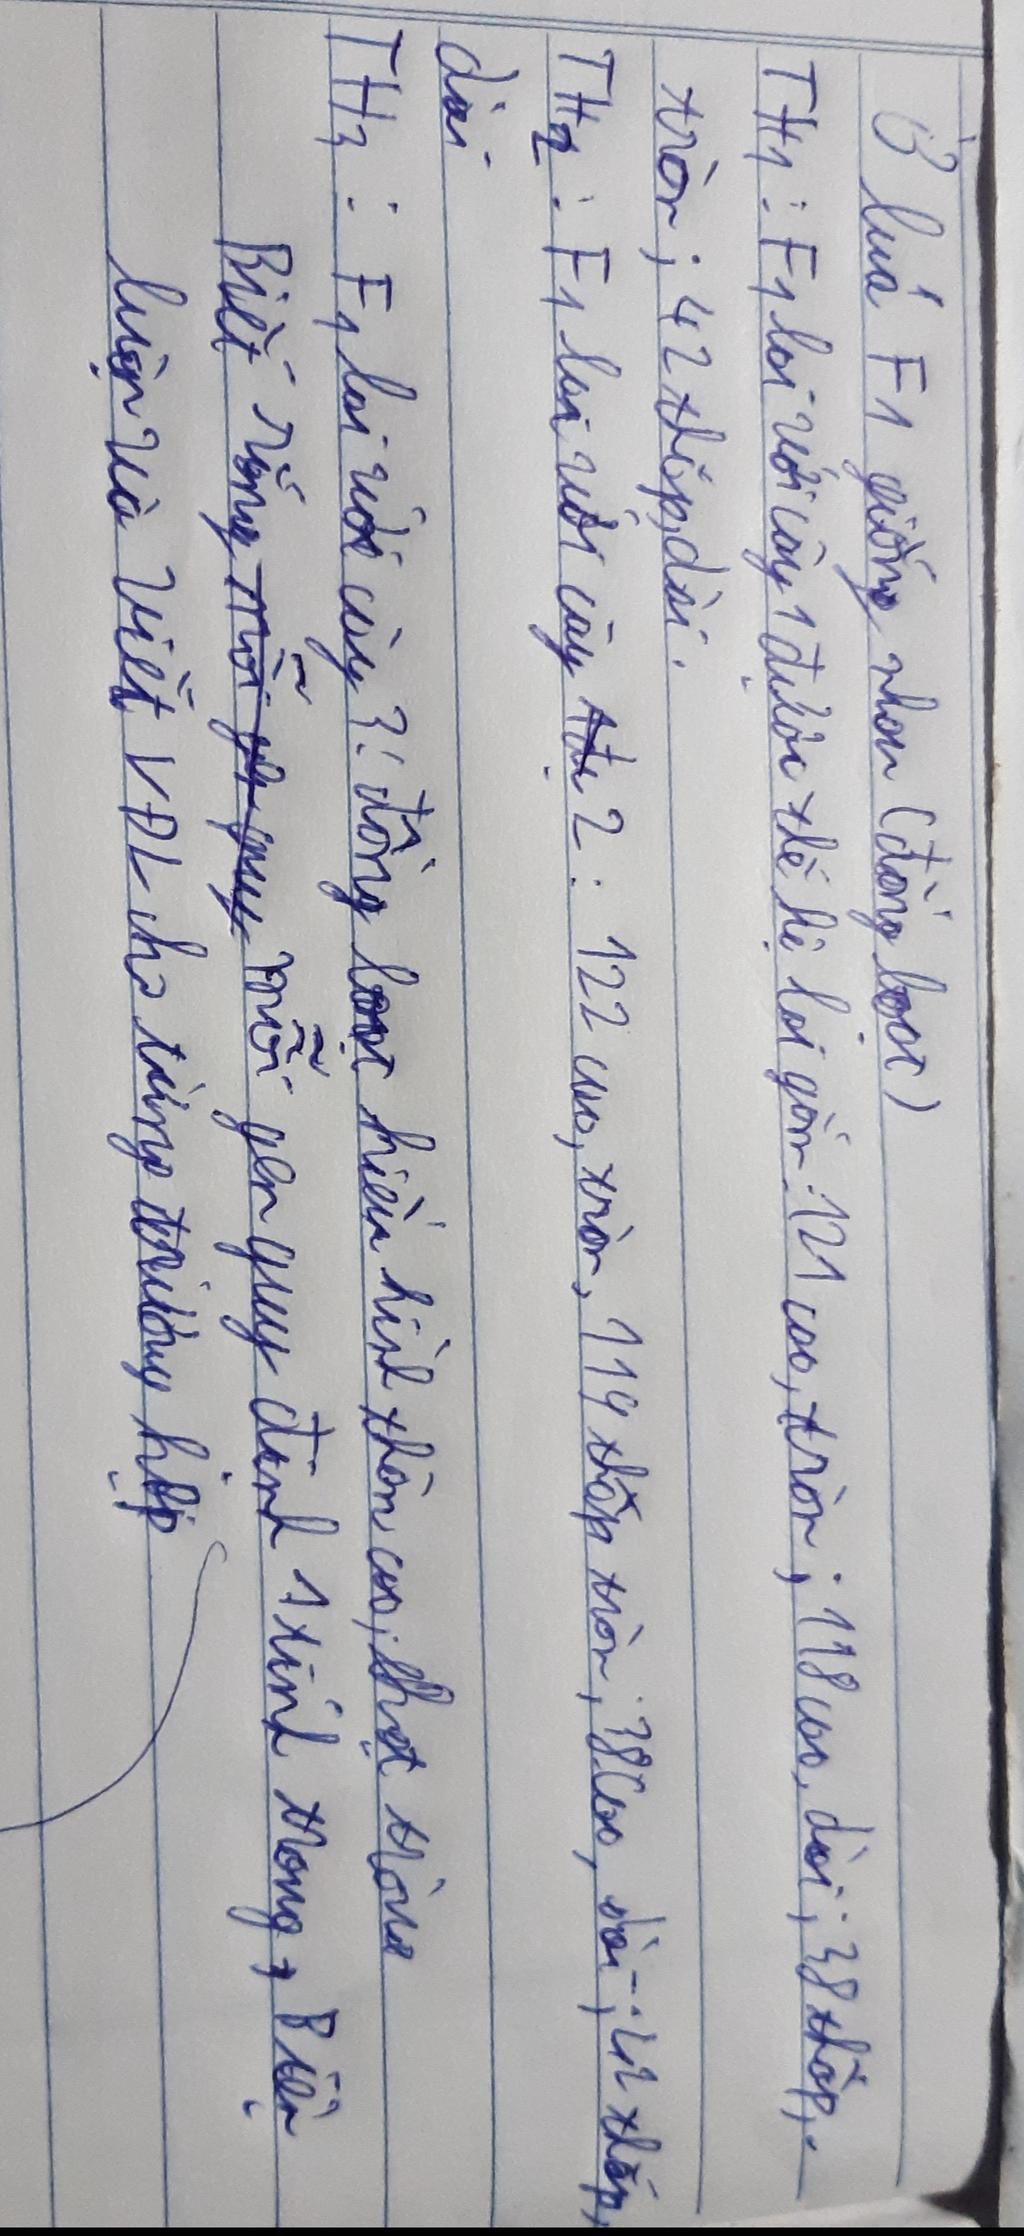 Ở lúa F1 giống nhau (đồng loạt)
TH1: F1 lai với cây 1 được thế hệ lai gồm: 121 cao, tròn; 118 cao, dài; 38 thấp,
tròn; 42 thấp, dài.
TH2: F1 lai với cây 2: 122 cao, tròn, 119 thấp tròn; 38 cao, dài; 42 thấp,
dài
TH3: F1 lai với cây 3: đồng loạt kiểu hình thân cao, hạt tròn
Biết rằng mỗi gen quy mỗi gen quy định 1 tính trạng, Biện
luận và viết VĐL cho từng trường hợp